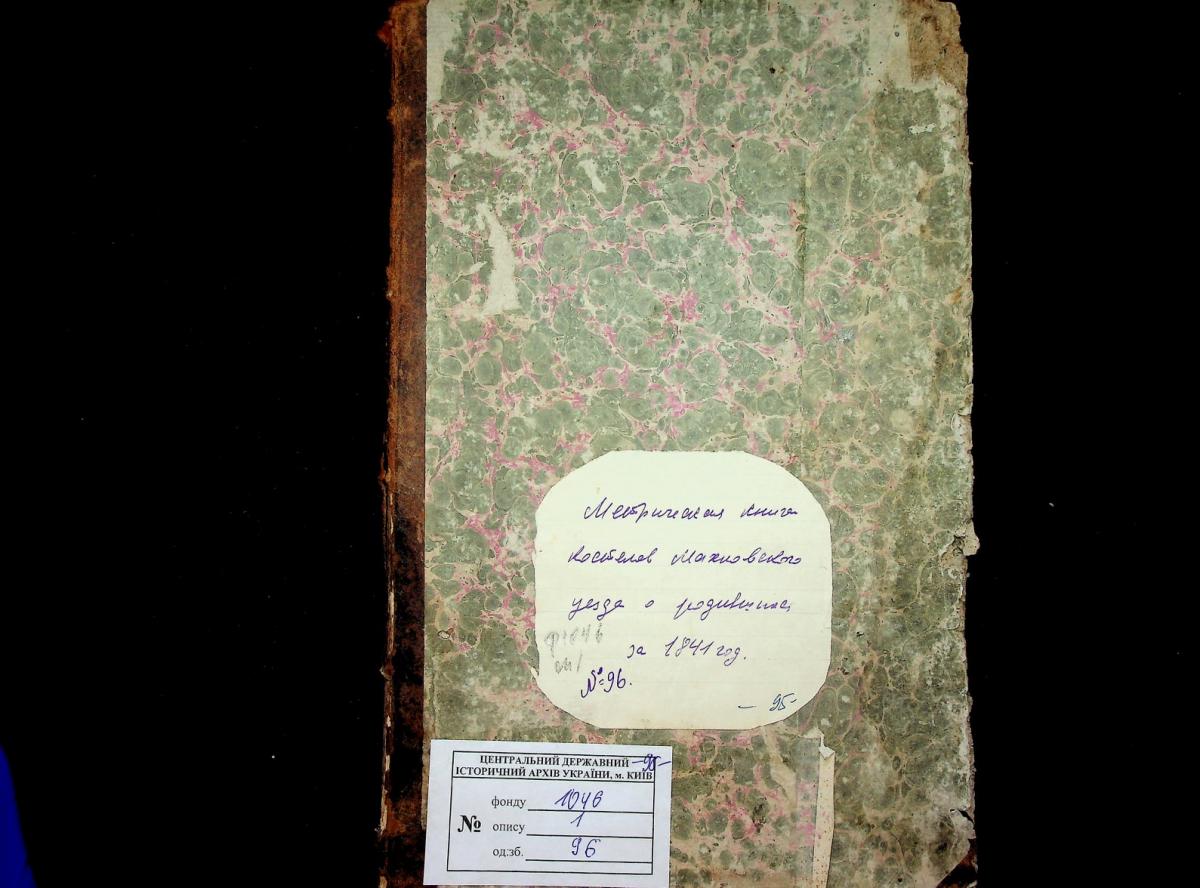 Метрическая книга
костелов Махновского
уезда о родившихся
за 1841 год.
ф1046
оп1
№96.
— 95-
ЦЕНТРАЛЬНИЙ ДЕРЖАВНИЙ —95—
ІСТОРИЧНИЙ АРХІВ УКРАЇНИ, м. КИЇВ
фонду 1046
№ опису 1
од.зб. 96